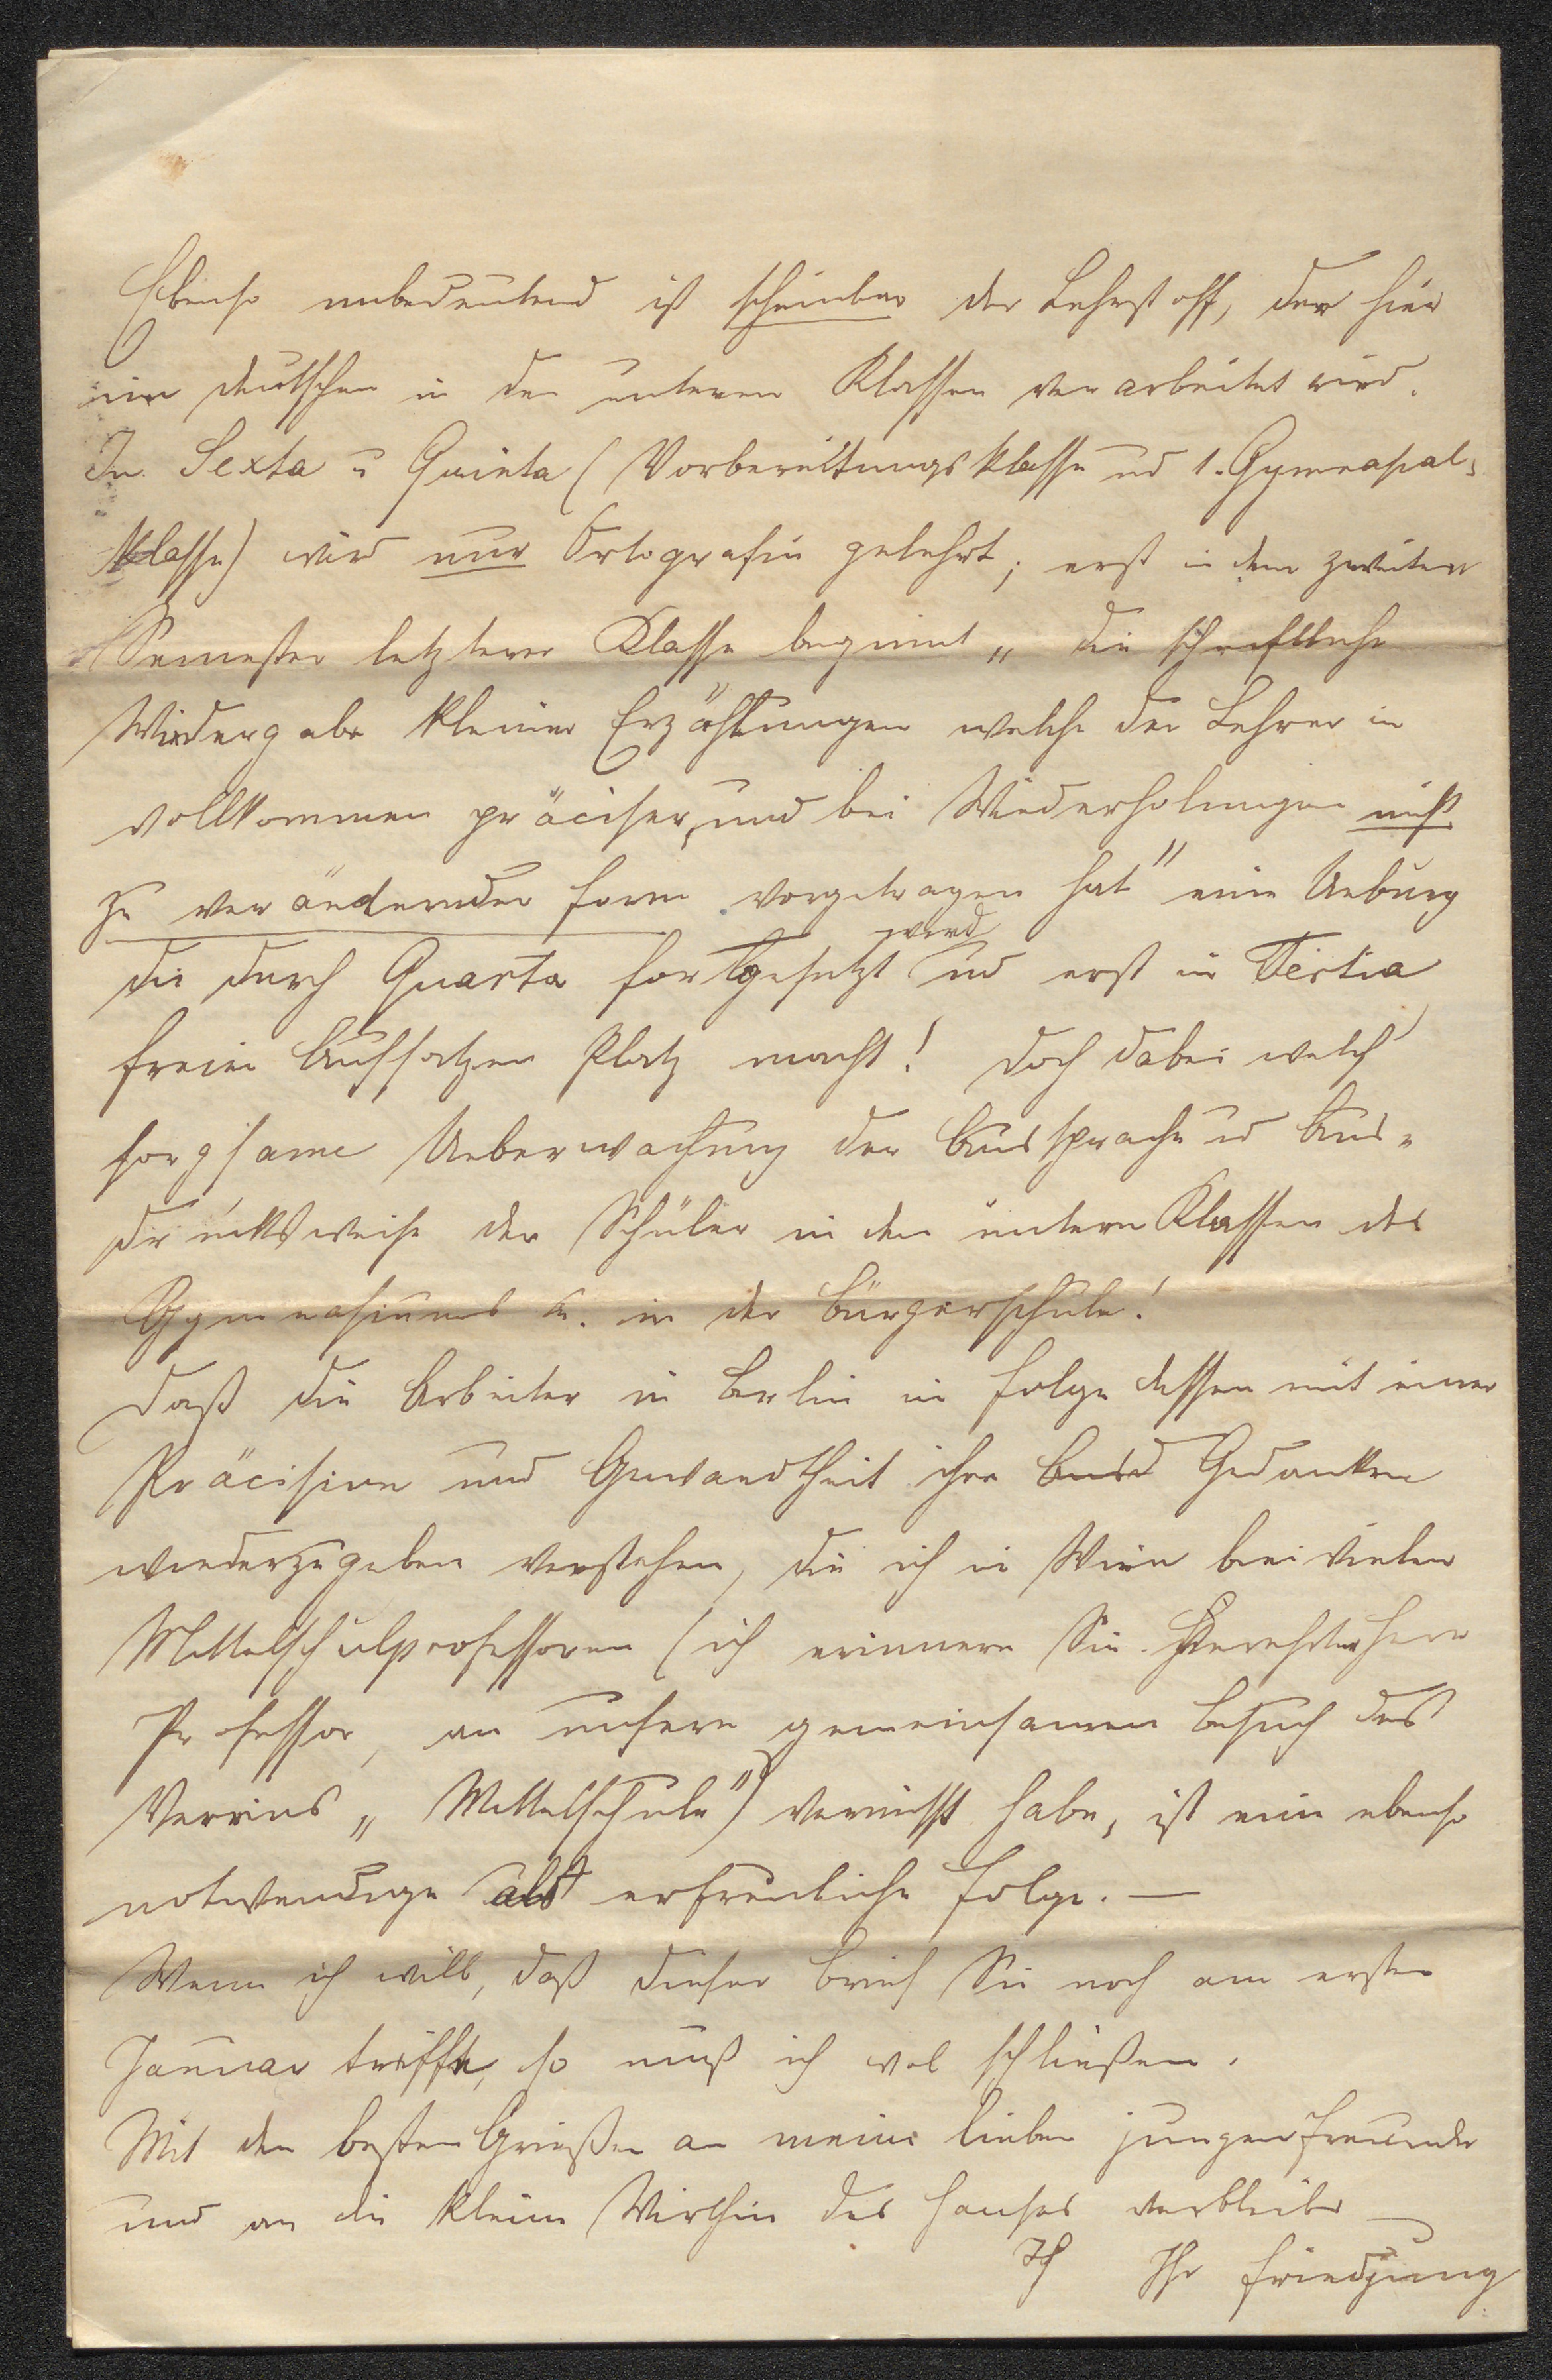 Ebenso unbedeutend ist scheinbar der Lehrstoff, der hier
im deutschen in den unteren Klassen verarbeitet wird.
In Sexta u Quinta (Vorbereitungsklasse und 1. Gymnasial-
klasse) wird nur Ortografie gelehrt; erst in dem zweiten
Semester letzterer Klasse beginnt „die schriftliche
Wiedergabe kleiner Erzählungen welche der Lehrer in
vollkommen präciser, und bei Wiederholungen nicht
zu verändernder Form vorgetragen hat" eine Uebung
die durch Quarta fortgesetzt wird und erst in Tertia
freien Aufsatzen Platz macht! Doch dabei welch
sorgsame Ueberwachung der Aussprache u Aus-
druksweise der Schüler in den untern Klassen des
Gymnasiums u. in der Bürgerschule!
Daß die Arbeiter in Berlin in Folge dessen mit einer
Präcision und Gewandtheit ihre Gedanken
wiederzugeben verstehen, die ich in Wien bei vielen
Mittelschulprofessoren (ich erinnere Sie Verehrter Herr
Professor, an unsern gemeinsamen Besuch des
Vereins „Mittelschule") vermisst habe, ist eine ebenso
notwendige als erfreuliche Folge. —
Wenn ich will, daß dieser Brief Sie noch am ersten
Januar treffe, so muß ich wol schließen.
Mit den besten Grüßen an meine lieben jungen Freunde
und an die kleine Wirthin des Hauses verbleibe
Ich Ihr Friedjung